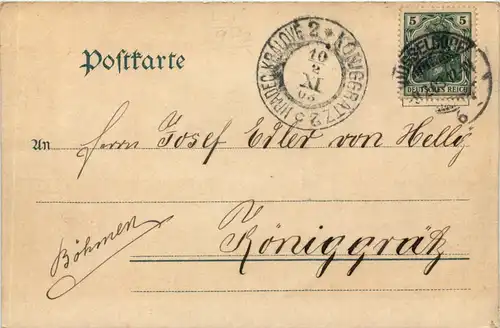 Postkarte
HRADEC KRÁLOVÉ 2 * KÖNIGGRATZ 2
10
XI
5 5
DEUTSCHES REICH
DÜSSELDORF
An Herrn Josef Edler von Helly
Böhmen
Königgrätz